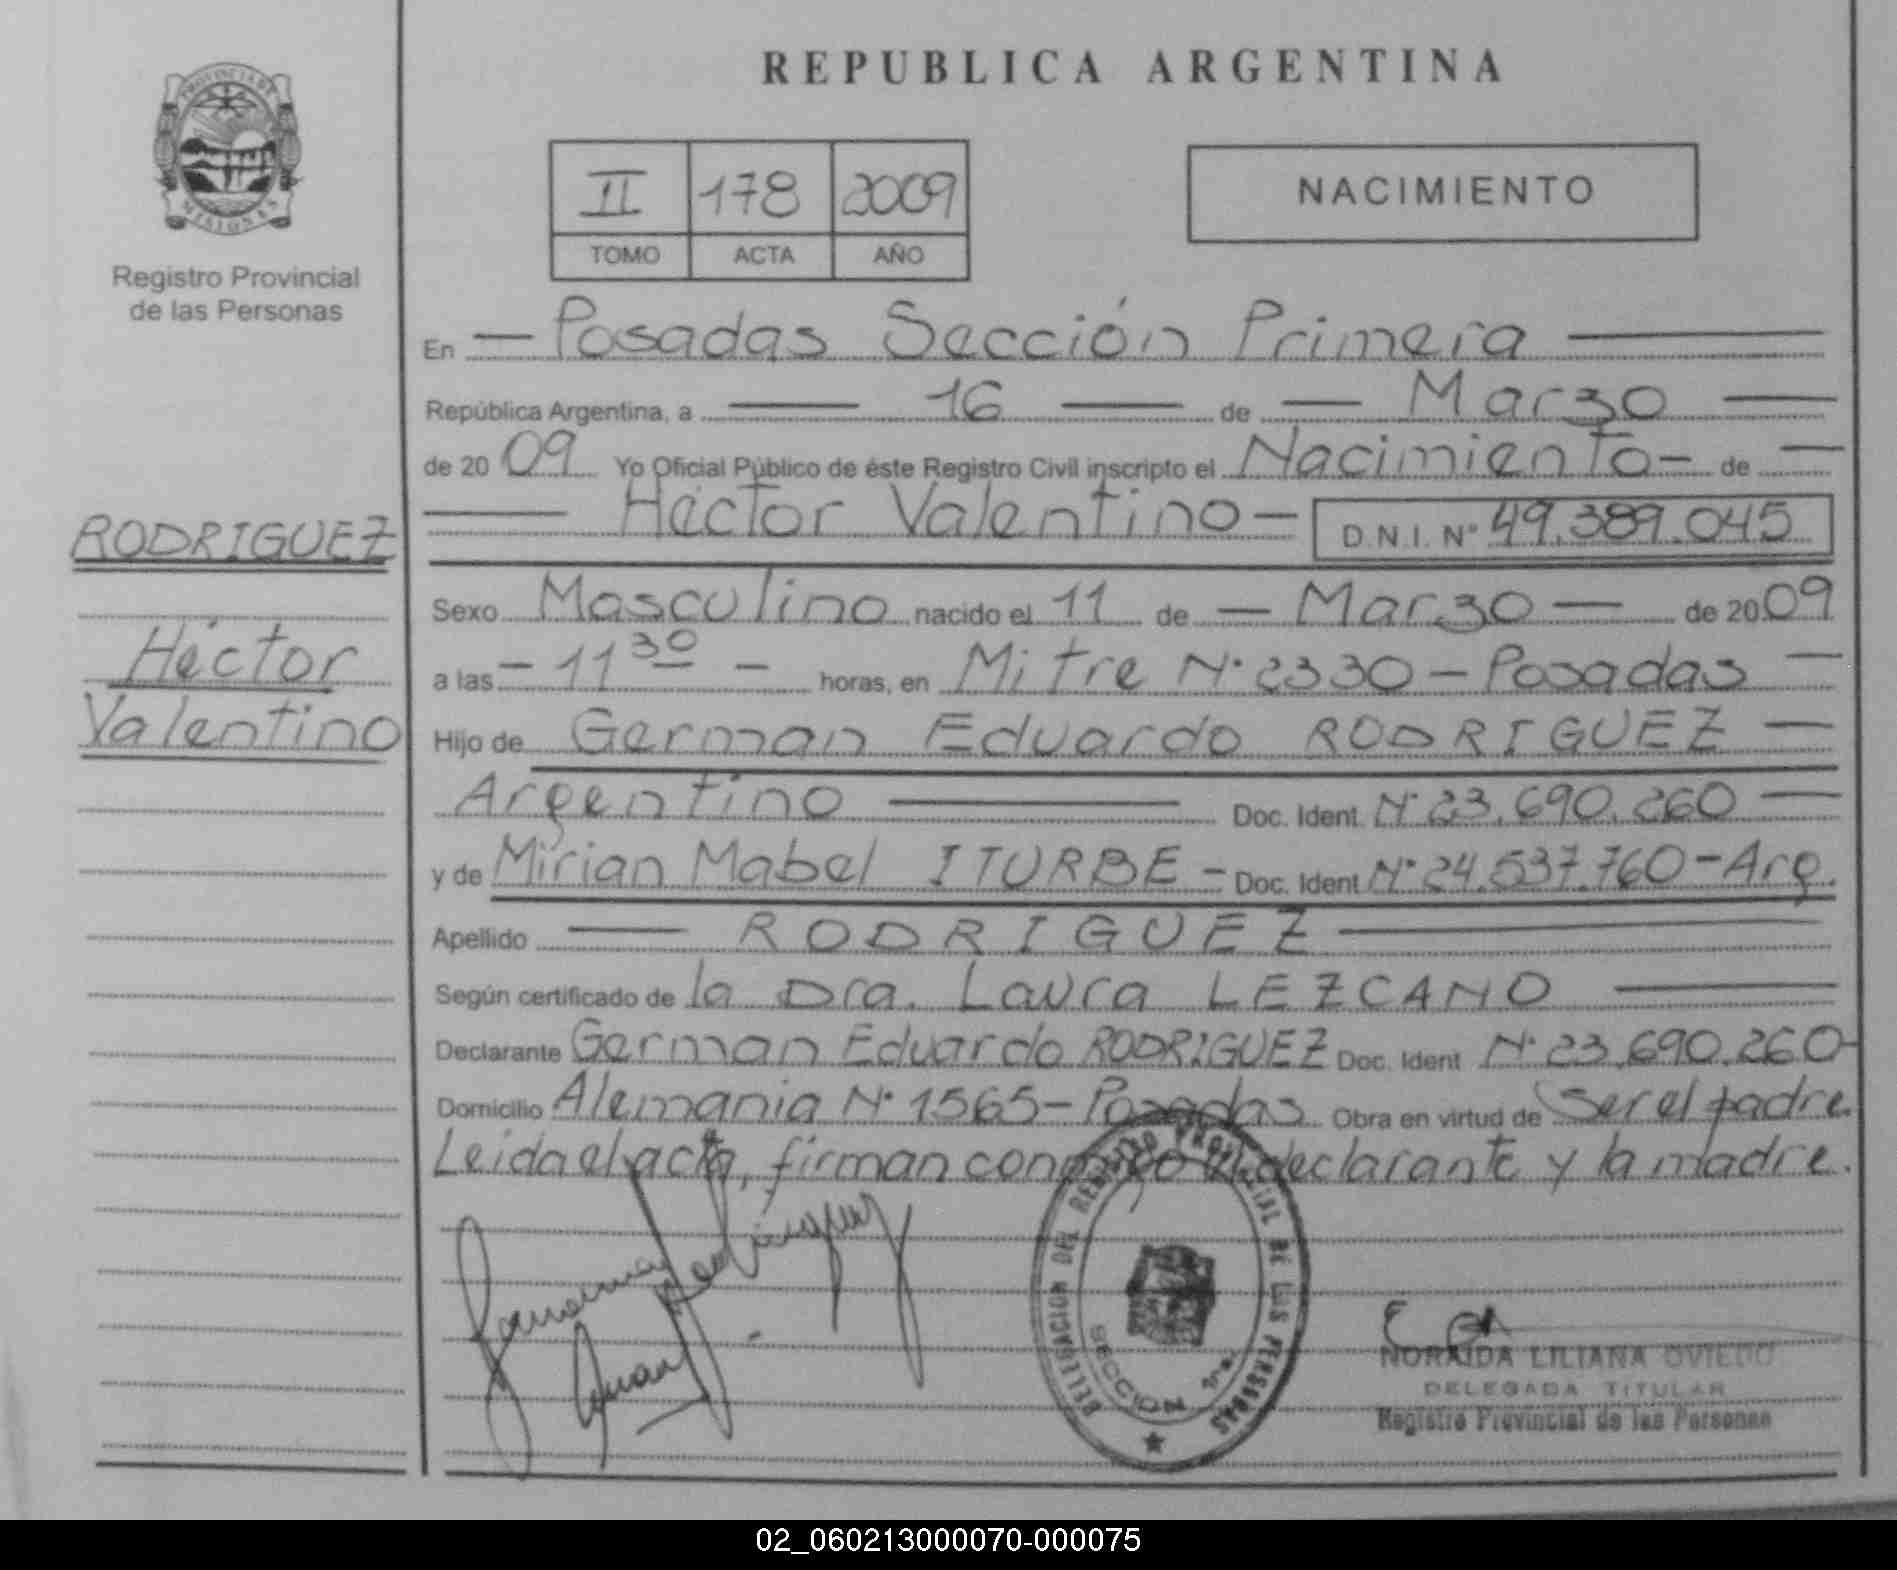 REPUBLICA ARGENTINA
PROVINCIA DE
MISIONES
Registro Provincial
de las Personas
II 178 2009
TOMO ACTA AÑO
NACIMIENTO
En Posadas Sección Primera
República Argentina, a 16 de Marzo
de 2009 Yo Oficial Público de éste Registro Civil inscripto el Nacimiento de
Héctor Valentino D.N.I. N° 49.389.045
RODRIGUEZ
Héctor
Valentino
Sexo Masculino nacido el 11 de Marzo de 2009
a las 11 30 horas, en Mitre N° 2330 - Posadas
Hijo de German Eduardo RODRIGUEZ
Argentino Doc. Ident. N° 23.690.260
y de Mirian Mabel ITURBE - Doc. Ident N° 24.537.760 - Arg.
Apellido RODRIGUEZ
Según certificado de la Dra. Laura LEZCANO
Declarante German Eduardo RODRIGUEZ Doc. Ident N° 23.690.260
Domicilio Alemania N° 1565 - Posadas Obra en virtud de Ser el padre.
Leida el acta, firman conmigo el declarante y la madre.
DELEGACION DEL REGISTRO PROVINCIAL DE LAS PERSONAS
SECCION 1ra.
NORAIDA LILIANA OVIEDO
DELEGADA TITULAR
Registro Provincial de las Personas
02_060213000070-000075